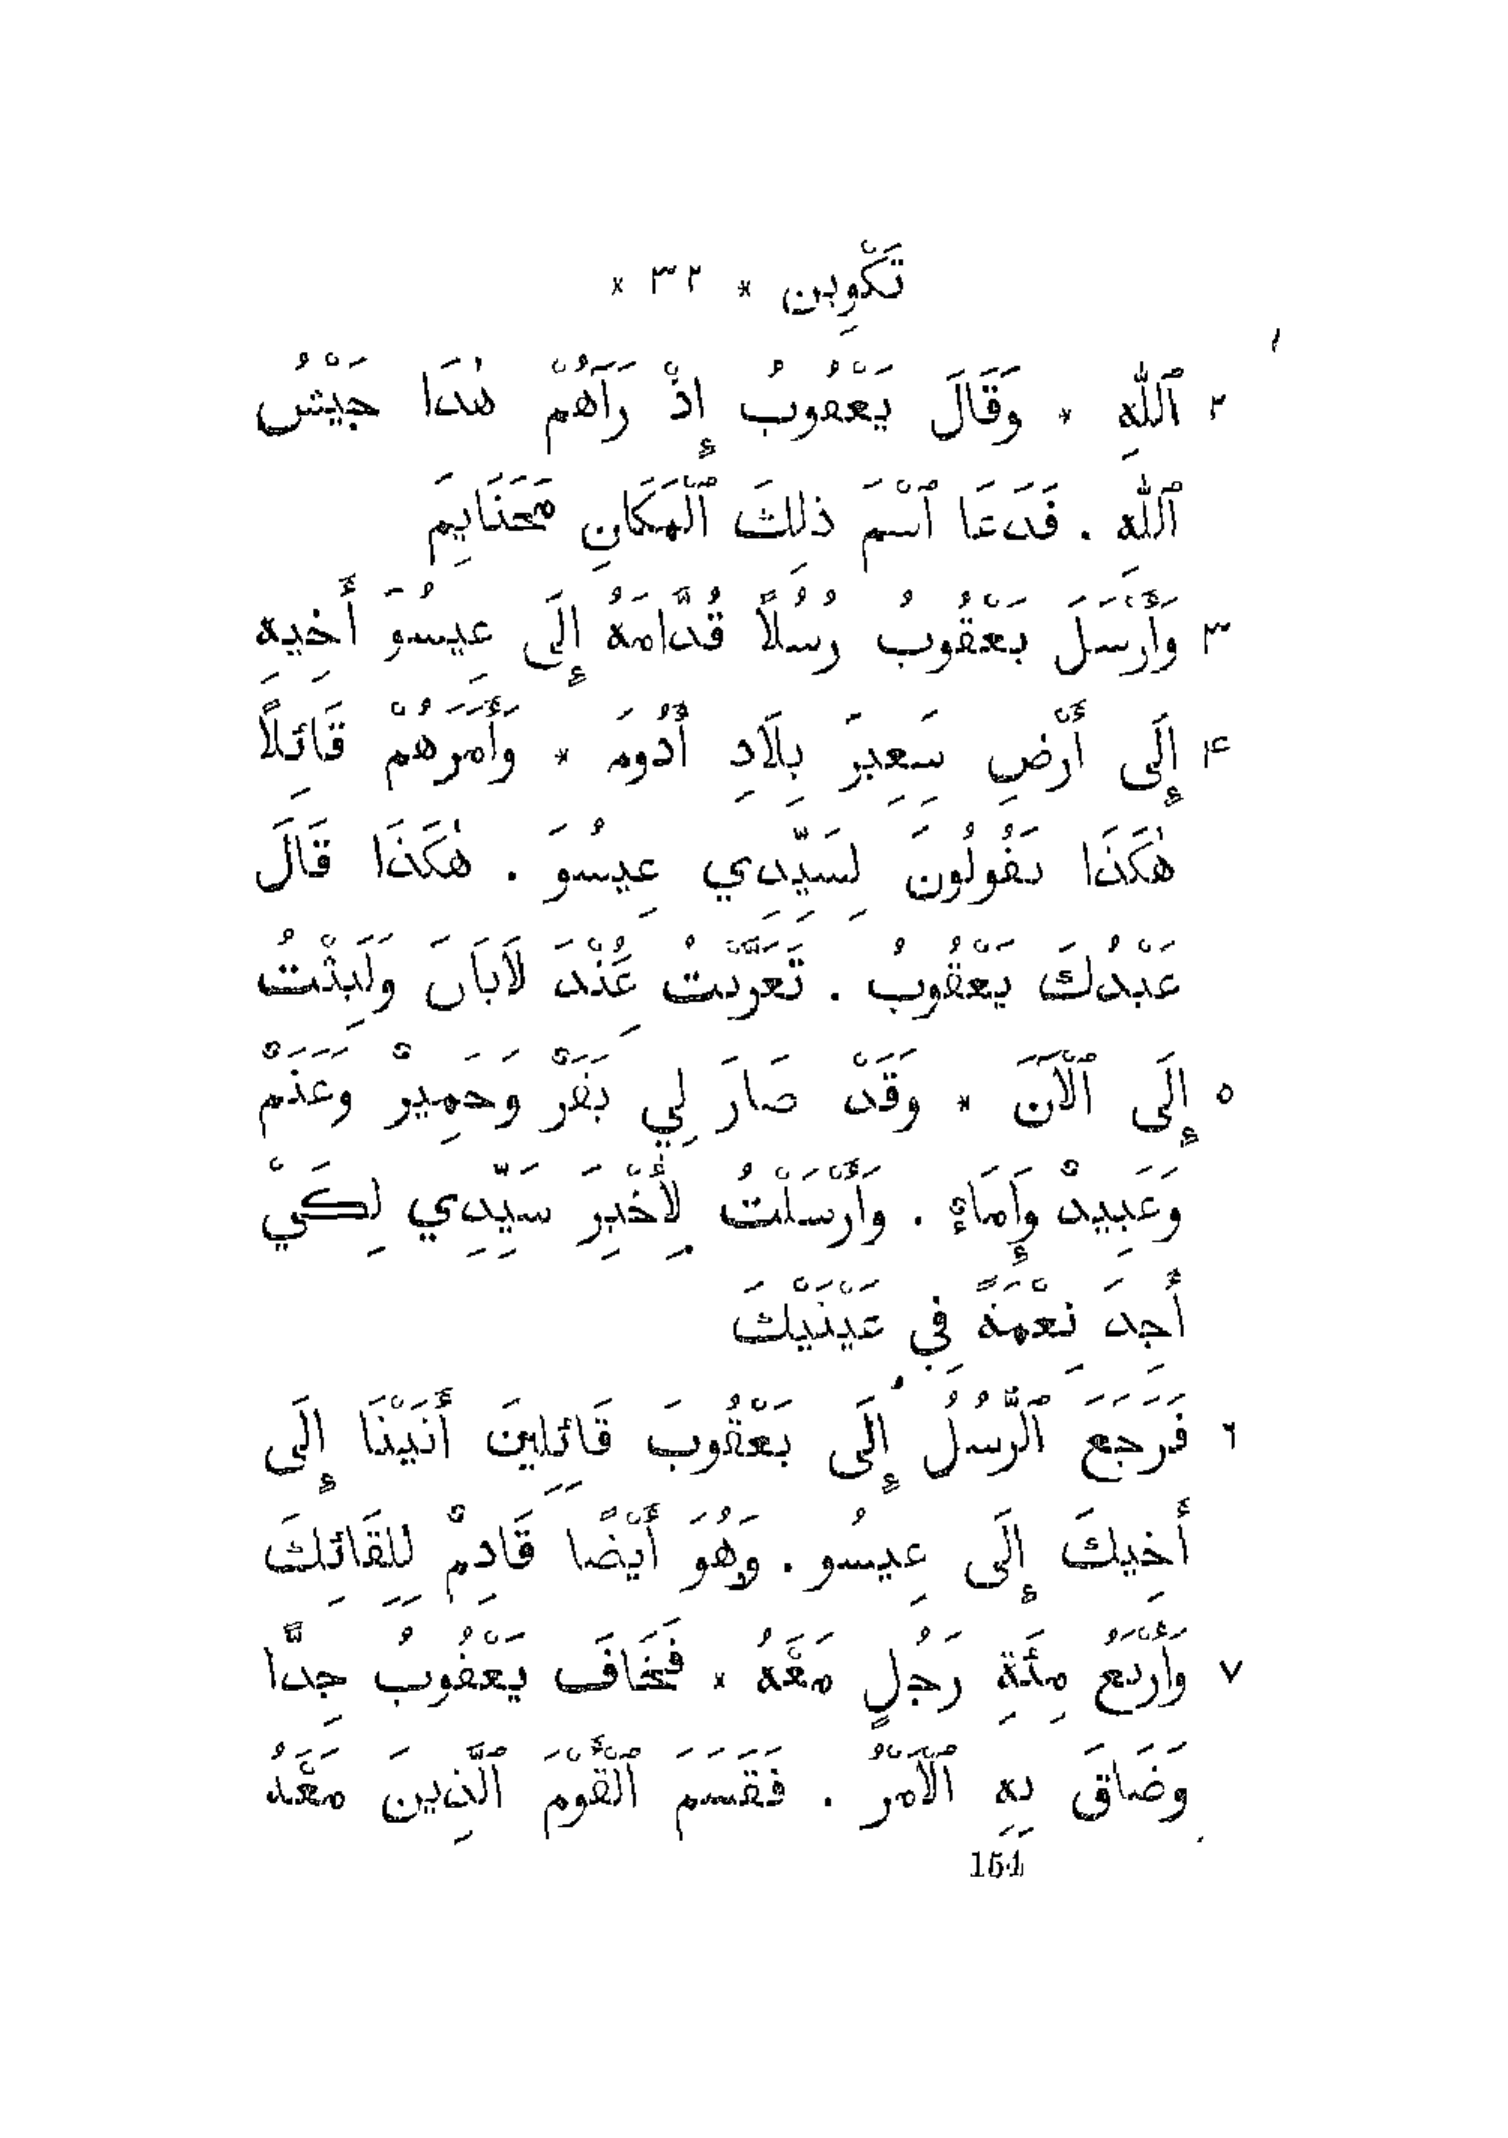 تَكْوِين * ٣٢ *
٢ ٱللّٰهِ * وَقَالَ يَعْقُوبُ إِذْ رَآهُمْ هٰذَا جَيْشُ
ٱللّٰهِ . فَدَعَا ٱسْمَ ذلِكَ ٱلْمَكَانِ مَحَنَايِمَ
٣ وَأَرْسَلَ يَعْقُوبُ رُسُلًا قُدَّامَهُ إِلَى عِيسُوَ أَخِيهِ
٤ إِلَى أَرْضِ سِعِيرَ بِلَادِ أَدُومَ * وَأَمَرَهُمْ قَائِلًا
هٰكَذَا تَقُولُونَ لِسَيِّدِي عِيسُوَ . هٰكَذَا قَالَ
عَبْدُكَ يَعْقُوبُ . تَغَرَّبْتُ عِنْدَ لَابَانَ وَلَبِثْتُ
٥ إِلَى ٱلْآنَ * وَقَدْ صَارَ لِي بَقَرٌ وَحَمِيرٌ وَغَنَمٌ
وَعَبِيدٌ وَإِمَاءٌ . وَأَرْسَلْتُ لِأُخْبِرَ سَيِّدِي لِكَيْ
أَجِدَ نِعْمَةً فِي عَيْنَيْكَ
٦ فَرَجَعَ ٱلرُّسُلُ إِلَى يَعْقُوبَ قَائِلِينَ أَتَيْنَا إِلَى
أَخِيكَ إِلَى عِيسُو . وَهُوَ أَيْضًا قَادِمٌ لِلِقَائِكَ
٧ وَأَرْبَعُ مِئَةِ رَجُلٍ مَعَهُ * فَخَافَ يَعْقُوبُ جِدًّا
وَضَاقَ بِهِ ٱلْأَمْرُ . فَقَسَمَ ٱلْقَوْمَ ٱلَّذِينَ مَعَهُ
154